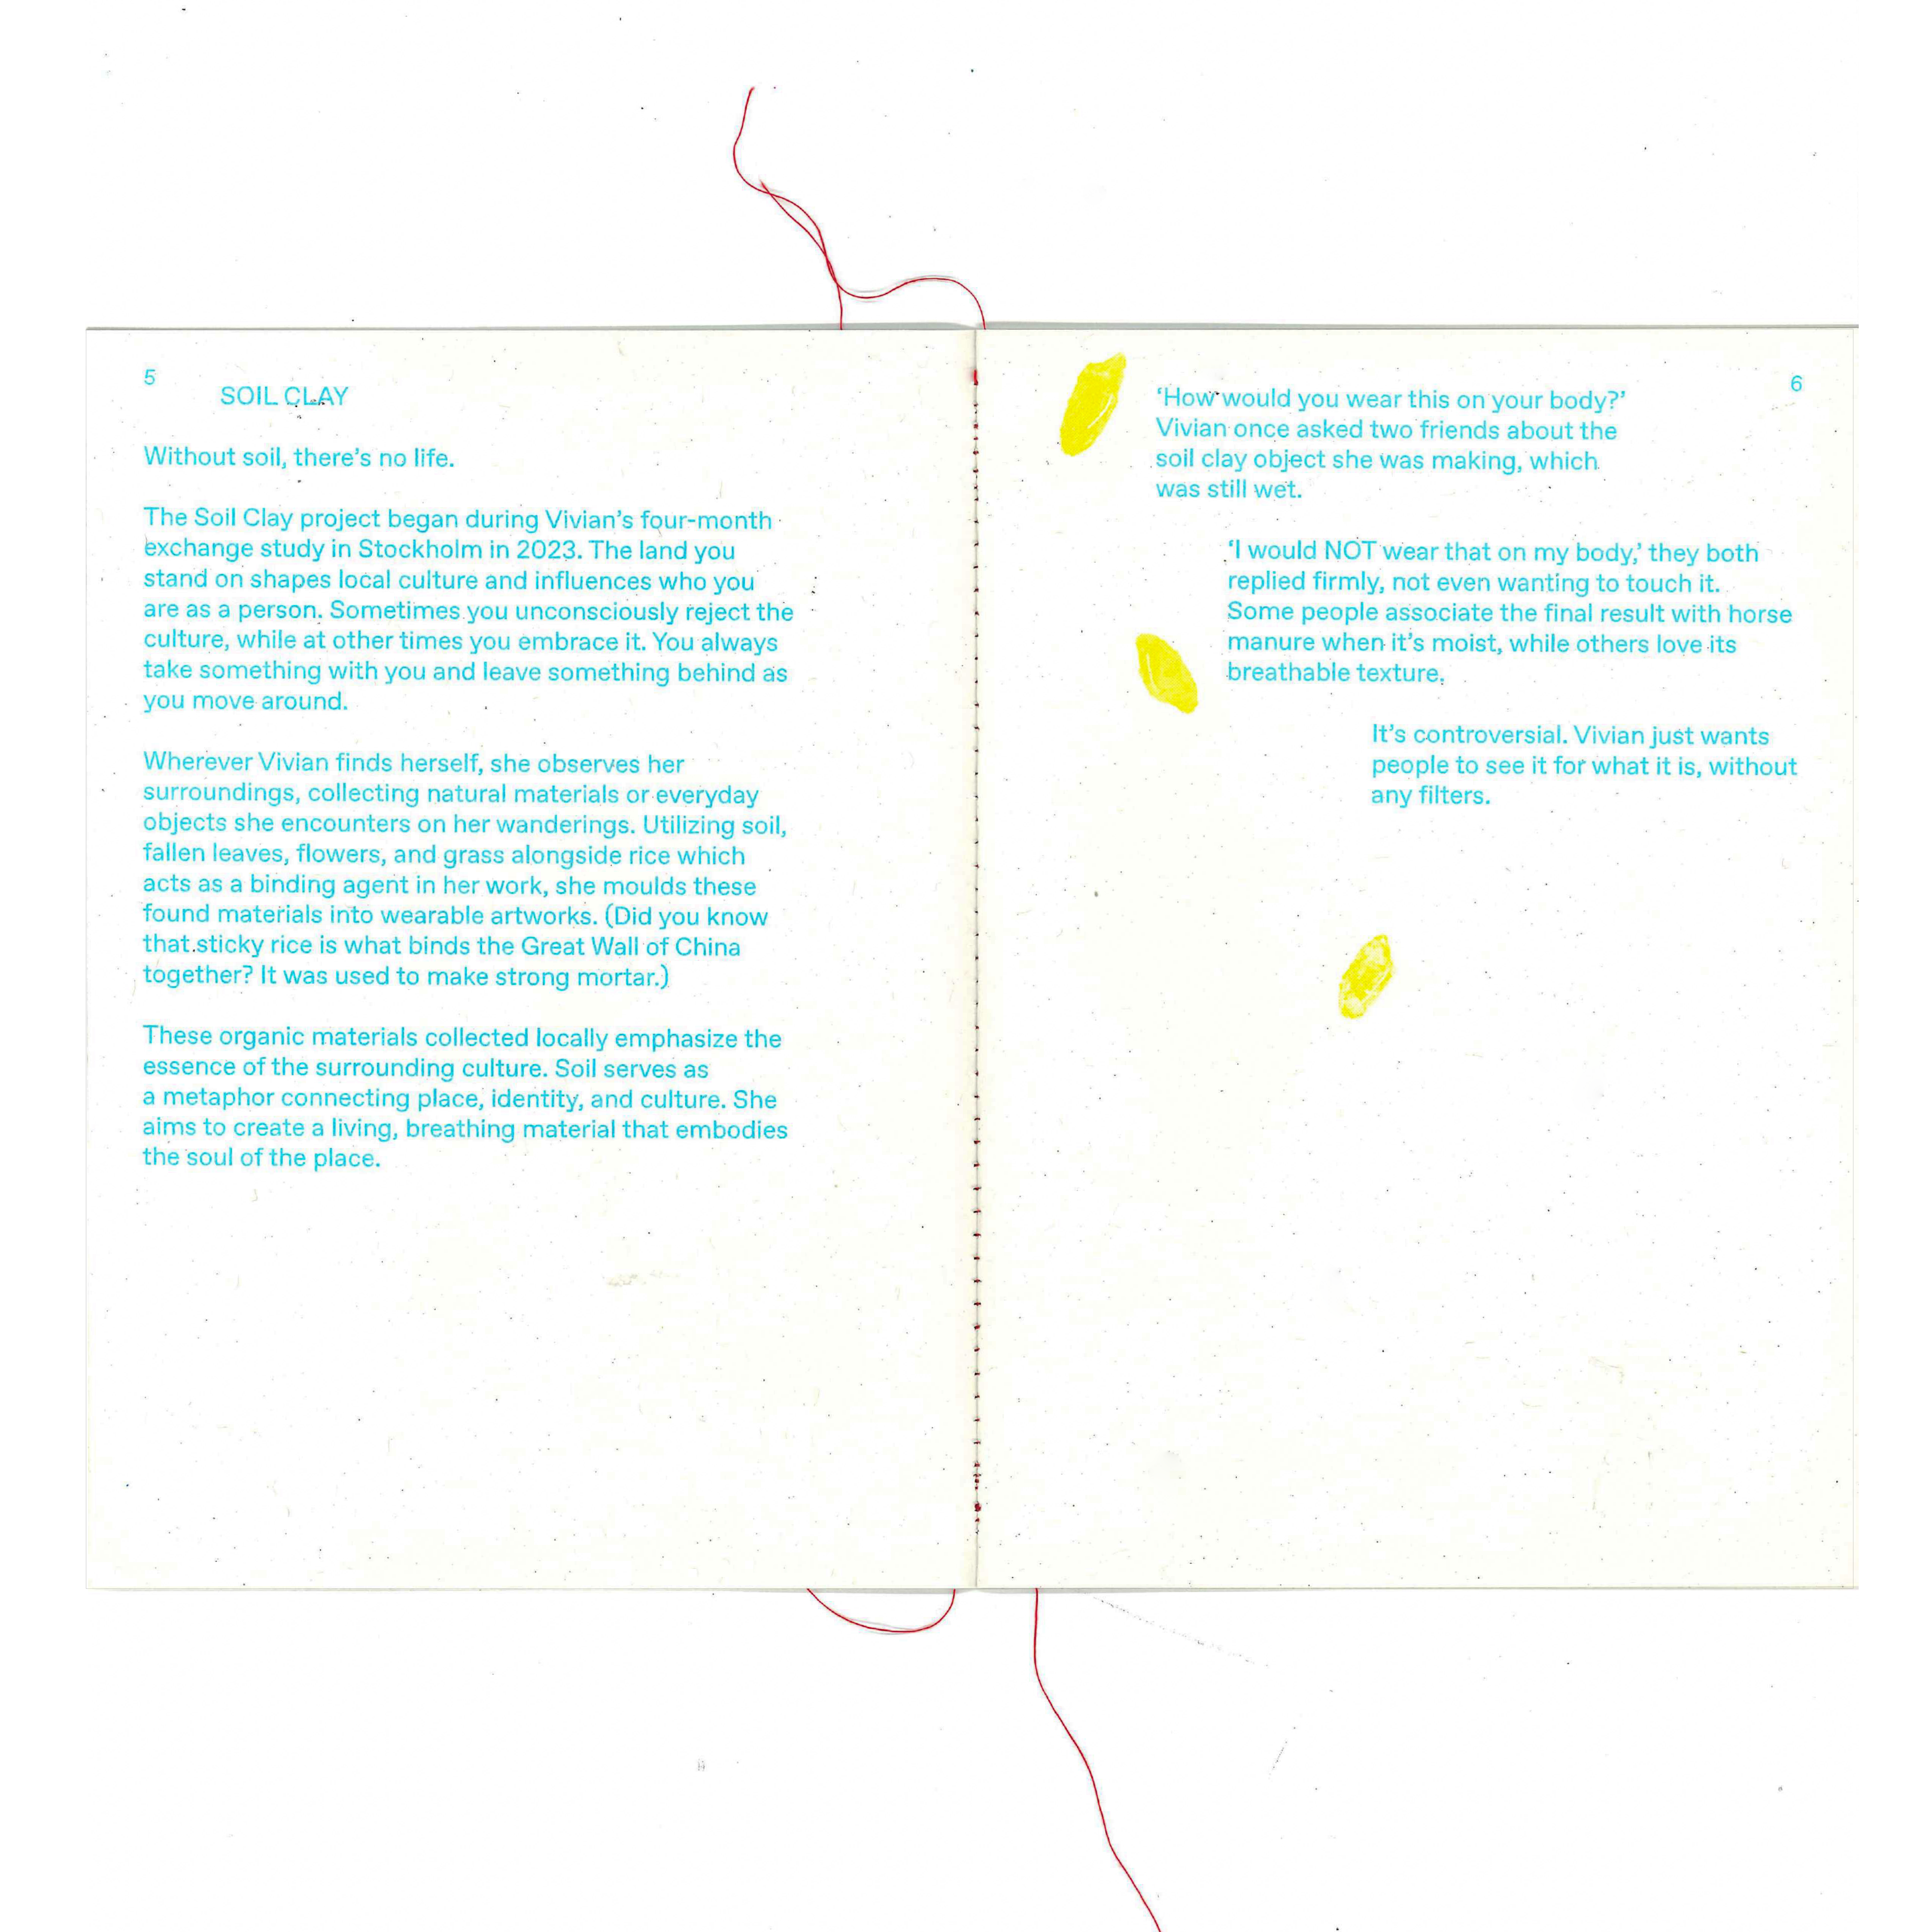 5
SOIL CLAY
Without soil, there's no life.
The Soil Clay project began during Vivian's four-month
exchange study in Stockholm in 2023. The land you
stand on shapes local culture and influences who you
are as a person. Sometimes you unconsciously reject the
culture, while at other times you embrace it. You always
take something with you and leave something behind as
you move around.
Wherever Vivian finds herself, she observes her
surroundings, collecting natural materials or everyday
objects she encounters on her wanderings. Utilizing soil,
fallen leaves, flowers, and grass alongside rice which
acts as a binding agent in her work, she moulds these
found materials into wearable artworks. (Did you know
that sticky rice is what binds the Great Wall of China
together? It was used to make strong mortar.)
These organic materials collected locally emphasize the
essence of the surrounding culture. Soil serves as
a metaphor connecting place, identity, and culture. She
aims to create a living, breathing material that embodies
the soul of the place.
6
‘How would you wear this on your body?’
Vivian once asked two friends about the
soil clay object she was making, which
was still wet.
‘I would NOT wear that on my body,’ they both
replied firmly, not even wanting to touch it.
Some people associate the final result with horse
manure when it's moist, while others love its
breathable texture.
It's controversial. Vivian just wants
people to see it for what it is, without
any filters.